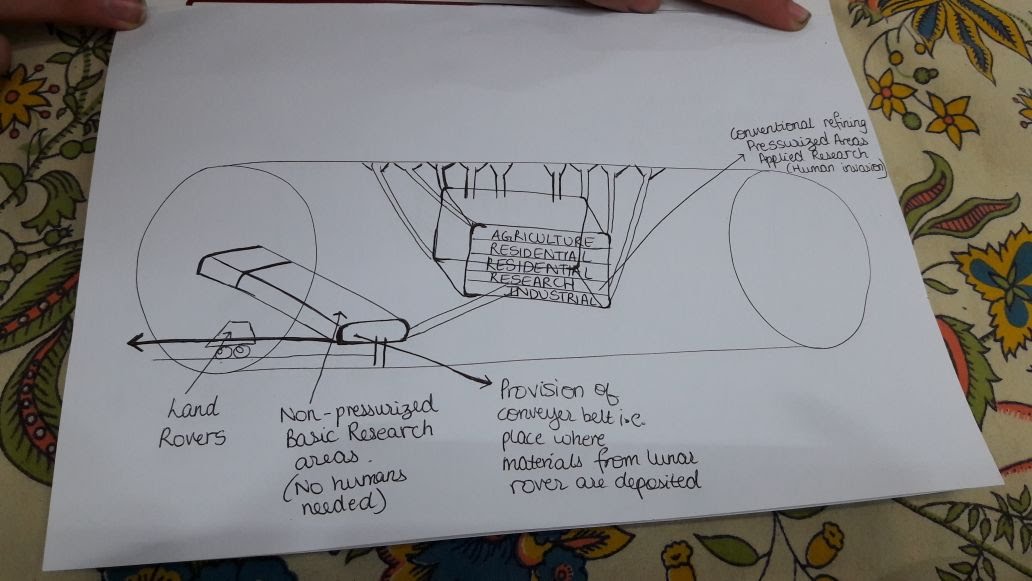 Conventional refining
Pressurized Areas
Applied Research
(Human invasion)
AGRICULTURE
RESIDENTIAL
RESIDENTIAL
RESEARCH
INDUSTRIAL
Land
Rovers
Non-pressurized
Basic Research
areas.
(No humans
needed)
Provision of
conveyer belt i.e.
place where
materials from lunar
rover are deposited